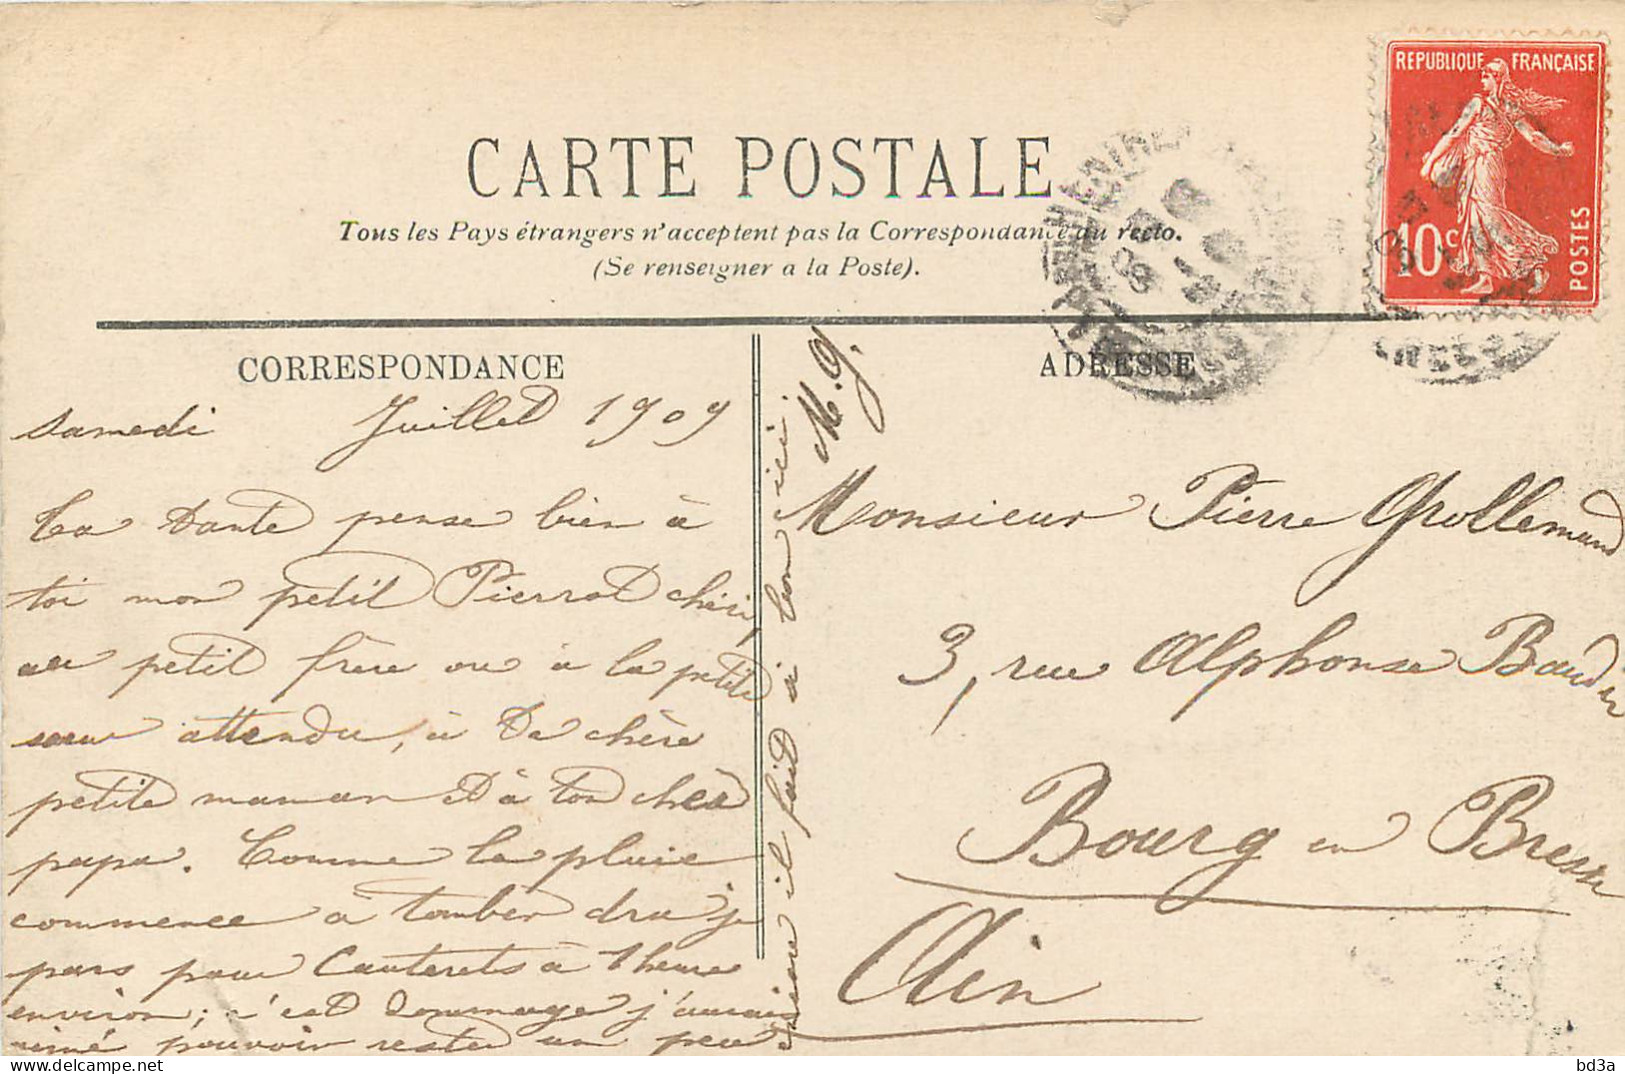 REPUBLIQUE FRANÇAISE
10c
POSTES
CARTE POSTALE
Tous les Pays étrangers n'acceptent pas la Correspondance au recto.
(Se renseigner a la Poste).
CORRESPONDANCE
ADRESSE
samedi Juillet 1909
Ta Tante pense bien à
toi mon petit Pierrot chéri,
au petit frère ou à la petite
sœur attendu, à Ta chère
petite maman et à ton cher
papa. Comme la pluie
commence à tomber dru je
pars pour Cauterets à 1 heure
environ; c'est dommage j'aurais
aimé pouvoir rester un peu
encore il fait à bon ici.
M. G.
Monsieur Pierre Grollemund
3, rue Alphonse Baudin
Bourg en Bresse
Ain
bd3a